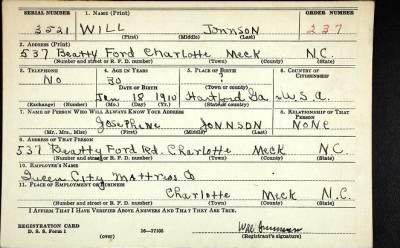 SERIAL NUMBER 1. NAME (Print) ORDER NUMBER
3521 WILL JOHNSON 237
(First) (Middle) (Last)
2. ADDRESS (Print)
537 Beatty Ford Charlotte Meck N.C.
(Number and street or R. F. D. number) (Town) (County) (State)
3. TELEPHONE 4. AGE IN YEARS 5. PLACE OF BIRTH 6. COUNTRY OF CITIZENSHIP
NO 30 ?
DATE OF BIRTH
Jan 18 1910 Hartford Ga. U.S.A.
(Exchange) (Number) (Mo.) (Day) (Yr.) (State or country)
7. NAME OF PERSON WHO WILL ALWAYS KNOW YOUR ADDRESS 8. RELATIONSHIP OF THAT PERSON
JOSEPHINE JOHNSON NONE
(Mr., Mrs., Miss) (First) (Middle) (Last)
9. ADDRESS OF THAT PERSON
537 Beatty Ford Rd. Charlotte Meck N.C.
(Number and street or R. F. D. number) (Town) (County) (State)
10. EMPLOYER'S NAME
Queen City Mattress Co
11. PLACE OF EMPLOYMENT OR BUSINESS
Charlotte Meck N.C.
(Number and street or R. F. D. number) (Town) (County) (State)
I AFFIRM THAT I HAVE VERIFIED ABOVE ANSWERS AND THAT THEY ARE TRUE.
REGISTRATION CARD
D. S. S. Form 1 (over) 16—17105 (Registrant's signature)